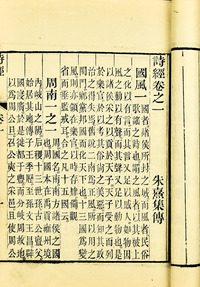 詩經卷之一
朱熹集傳
國風一
國者諸侯所封之域而風者民俗
歌謠之詩也謂之風者以其被上
之化以有言而其言又足以感人如物因
風之動以有聲而其聲又足以動物也是
以諸侯采之以貢於天子天子受之而列
於樂官於以考其俗尚之美惡而知其政
治之得失焉舊說二南爲正風所以用之
閨門鄉黨邦國而化天下也十三國爲變
風則亦領在樂官以時存肄備觀
省而垂監戒耳合之凡十五國云
周南一之一
周國名南南方諸侯之國
也周國本在禹貢雍州境
內岐山之陽后稷十三世孫古公亶父
始居其地傳子王季歷至孫文王昌辟
國寖廣於是徙都于豐而分岐周故
地以爲周公旦召公奭之采邑且使周公
詩經
卷一